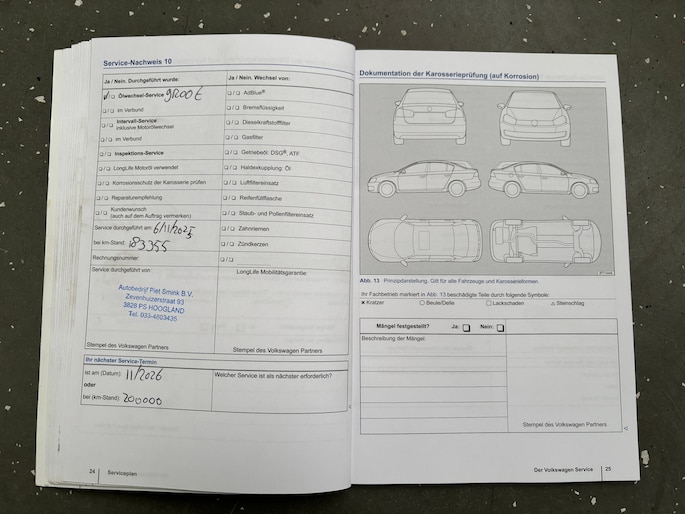 Service-Nachweis 10
Ja / Nein. Durchgeführt wurde:
Ja / Nein. Wechsel von:
Ölwechsel-Service groot
im Verbund
Intervall-Service
inklusive Motorölwechsel
im Verbund
Inspektions-Service
LongLife Motoröl verwendet
Korrosionsschutz der Karosserie prüfen
Reparaturempfehlung
Kundenwunsch
(auch auf dem Auftrag vermerken)
AdBlue®
Bremsflüssigkeit
Dieselkraftstofffilter
Gasfilter
Getriebeöl: DSG®, ATF
Haldexkupplung: Öl
Luftfiltereinsatz
Reifenfüllflasche
Staub- und Pollenfiltereinsatz
Zahnriemen
Zündkerzen
Service durchgeführt am: 6/11/2025
bei km-Stand: 183355
Rechnungsnummer:
Service durchgeführt von:
LongLife Mobilitätsgarantie:
Autobedrijf Piet Smink B.V.
Zevenhuizerstraat 93
3828 PS HOOGLAND
Tel. 033-4803435
Stempel des Volkswagen Partners
Stempel des Volkswagen Partners
Ihr nächster Service-Termin
ist am (Datum): 11/2026
oder
bei (km-Stand): 200000
Welcher Service ist als nächster erforderlich?
24 Serviceplan
Dokumentation der Karosserieprüfung (auf Korrosion)
Abb. 13 Prinzipdarstellung. Gilt für alle Fahrzeuge und Karosserieformen.
Ihr Fachbetrieb markiert in Abb. 13 beschädigte Teile durch folgende Symbole:
× Kratzer ○ Beule/Delle □ Lackschaden △ Steinschlag
Mängel festgestellt? Ja: Nein:
Beschreibung der Mängel:
Stempel des Volkswagen Partners
Der Volkswagen Service 25